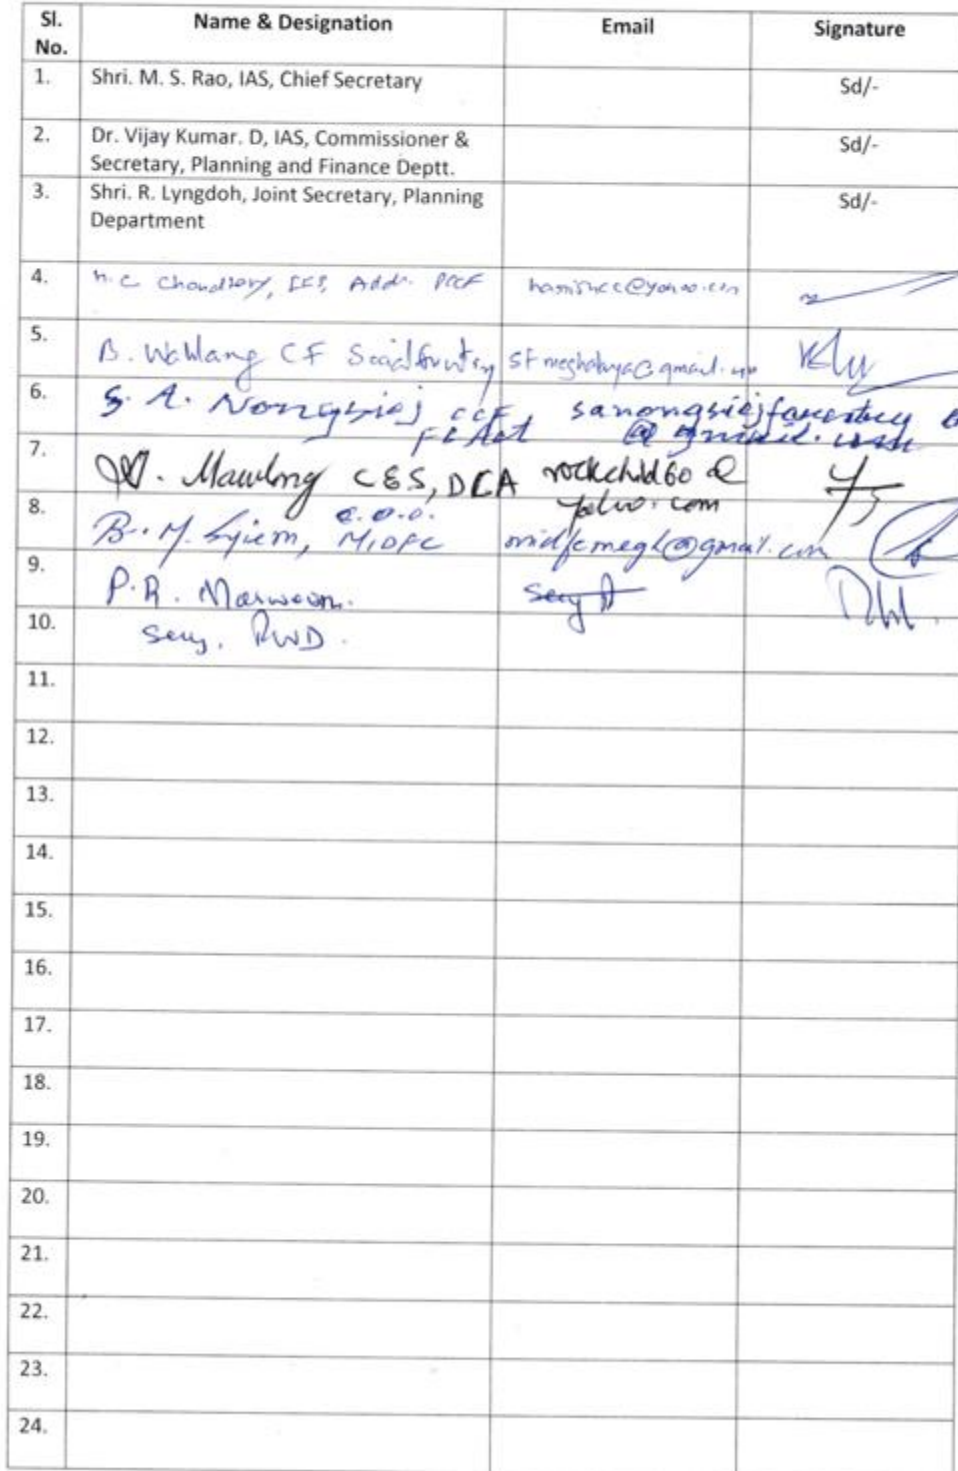 Sl. No. Name & Designation Email Signature
1. Shri. M. S. Rao, IAS, Chief Secretary Sd/-
2. Dr. Vijay Kumar. D, IAS, Commissioner &
Secretary, Planning and Finance Deptt. Sd/-
3. Shri. R. Lyngdoh, Joint Secretary, Planning
Department Sd/-
4. H.C. Choudhary, IFS, Addl. PCCF
5. B. Wahlang CF Social Forestry sfmeghalaya@gmail.com
6. S. A. Nongsiej CCF, sanongsiejforestry
@gmail.com
7. Mawlong CES, DCA rockchild60@
yahoo.com
8. B. M. Syiem, C.O.O.
MIDFC midfcmegh@gmail.com
9. P.R. Marwein.
10. Secy, PWD.
11.
12.
13.
14.
15.
16.
17.
18.
19.
20.
21.
22.
23.
24.